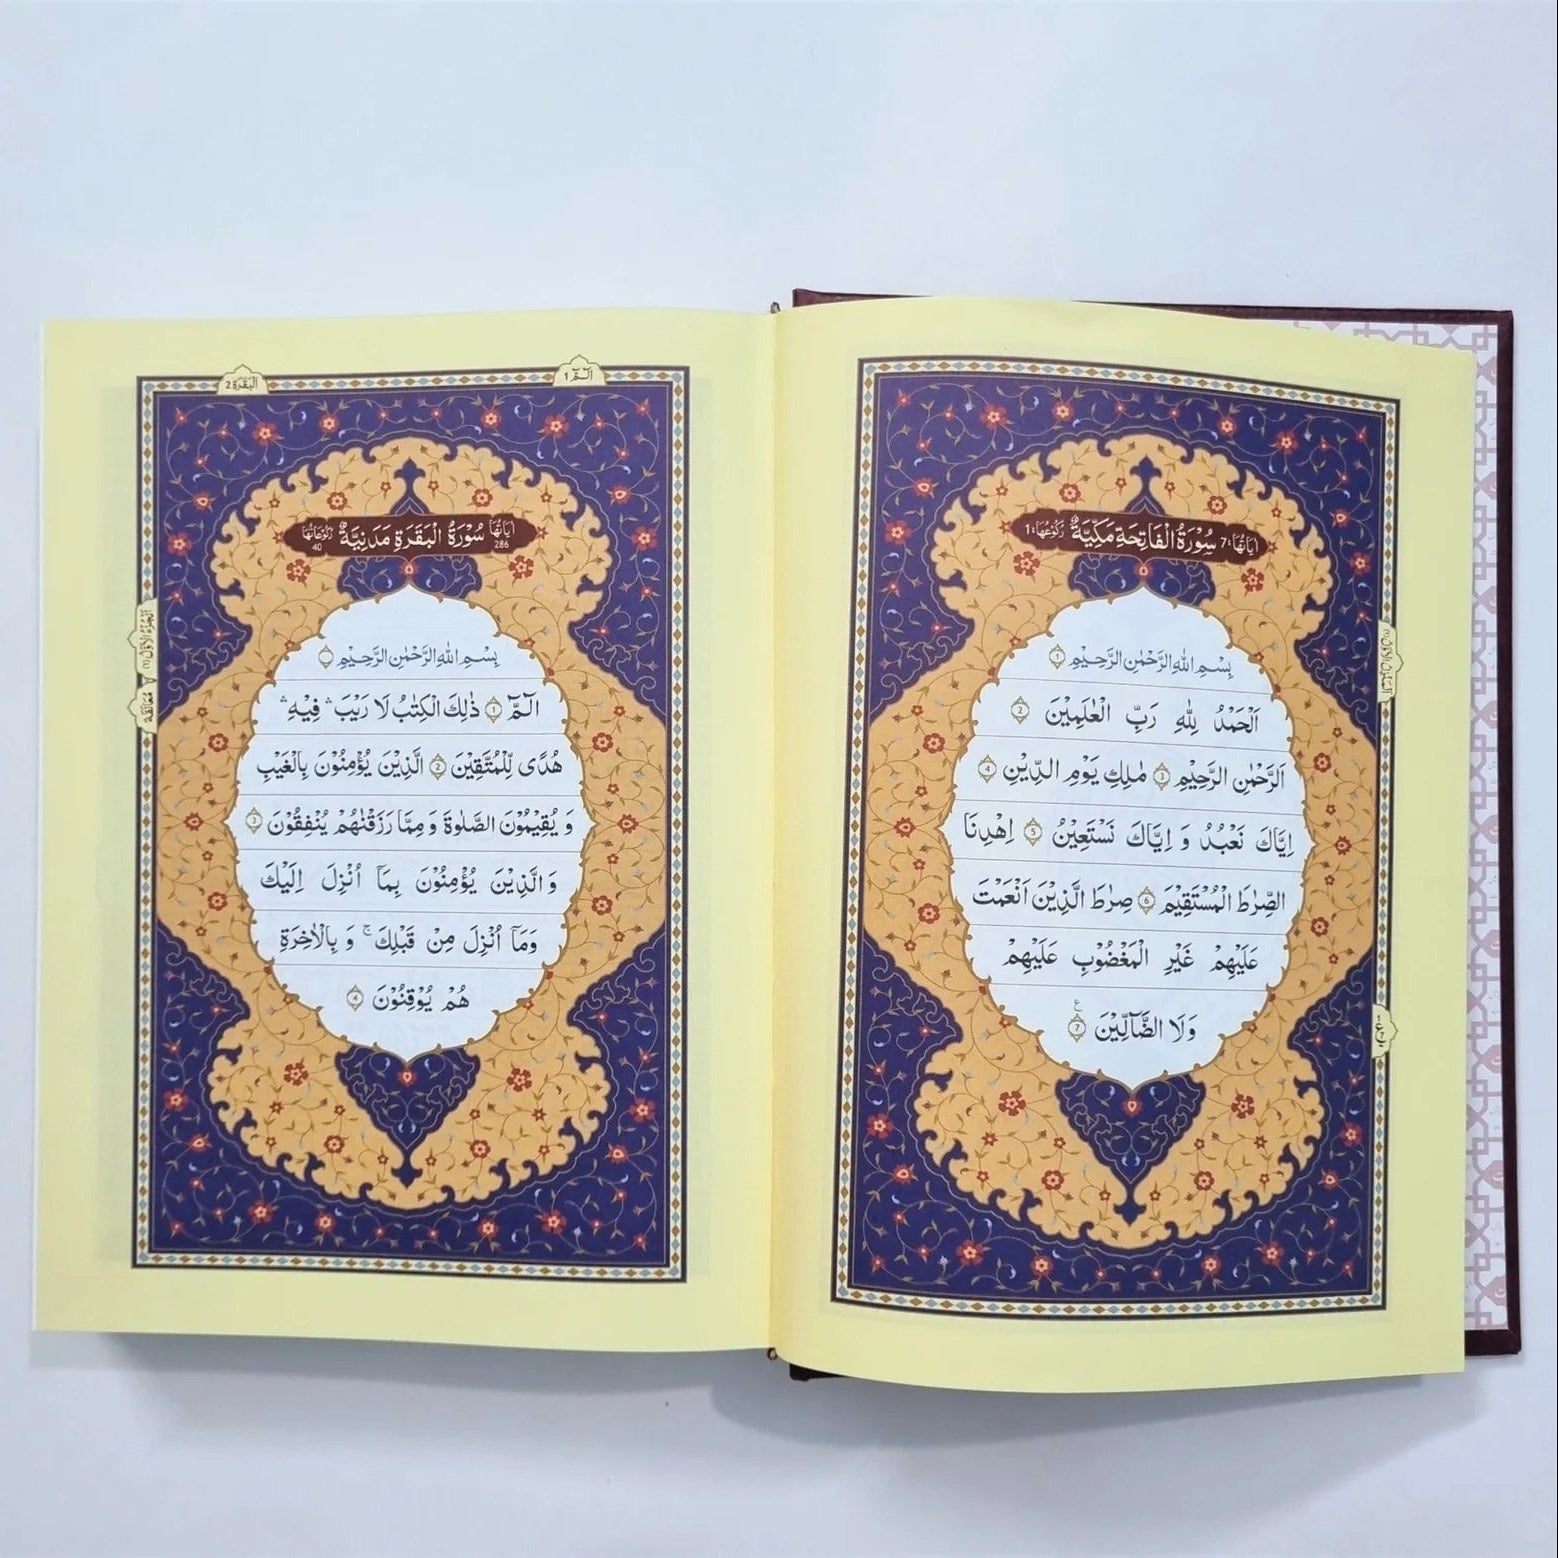 اٰيَاتُهَا: 7 سُوْرَةُ الْفَاتِحَةِ مَكِّيَّةٌ رُكُوْعُهَا: 1
بِسْمِ اللّٰهِ الرَّحْمٰنِ الرَّحِيْمِ ١
اَلْحَمْدُ لِلّٰهِ رَبِّ الْعٰلَمِيْنَ ٢
الرَّحْمٰنِ الرَّحِيْمِ ٣ مٰلِكِ يَوْمِ الدِّيْنِ ٤
اِيَّاكَ نَعْبُدُ وَ اِيَّاكَ نَسْتَعِيْنُ ٥ اِهْدِنَا
الصِّرٰطَ الْمُسْتَقِيْمَ ٦ صِرٰطَ الَّذِيْنَ اَنْعَمْتَ
عَلَيْهِمْ غَيْرِ الْمَغْضُوْبِ عَلَيْهِمْ
وَلَا الضَّآلِّيْنَ ٧ ع
اَلْبَقَرَة 2
الٓمّٓ 1
اٰيَاتُهَا 286 سُوْرَةُ الْبَقَرَةِ مَدَنِيَّةٌ رُكُوْعَاتُهَا 40
اَلْجُزْءُ الْاَوَّلُ (١)
مُعَانَقَة
بِسْمِ اللّٰهِ الرَّحْمٰنِ الرَّحِيْمِ
الٓمّٓ ١ ذٰلِكَ الْكِتٰبُ لَا رَيْبَ ۛ فِيْهِ ۛ
هُدًى لِّلْمُتَّقِيْنَ ٢ الَّذِيْنَ يُؤْمِنُوْنَ بِالْغَيْبِ
وَ يُقِيْمُوْنَ الصَّلٰوةَ وَ مِمَّا رَزَقْنٰهُمْ يُنْفِقُوْنَ ٣
وَ الَّذِيْنَ يُؤْمِنُوْنَ بِمَآ اُنْزِلَ اِلَيْكَ
وَمَآ اُنْزِلَ مِنْ قَبْلِكَ ۚ وَ بِالْاٰخِرَةِ
هُمْ يُوْقِنُوْنَ ٤